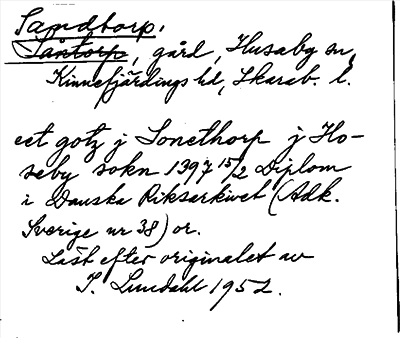 Sandtorp.
Såntorp, gård, Husaby sn,
Kinnefjärdings hd, Skarab. l.
eet gotz j Sonethorp j Ho-
seby sokn 1397 15/2 Diplom
i Danska Riksarkivet (Adk.
Sverige nr 38) or.
Läst efter originalet av
I. Lundahl 1952.